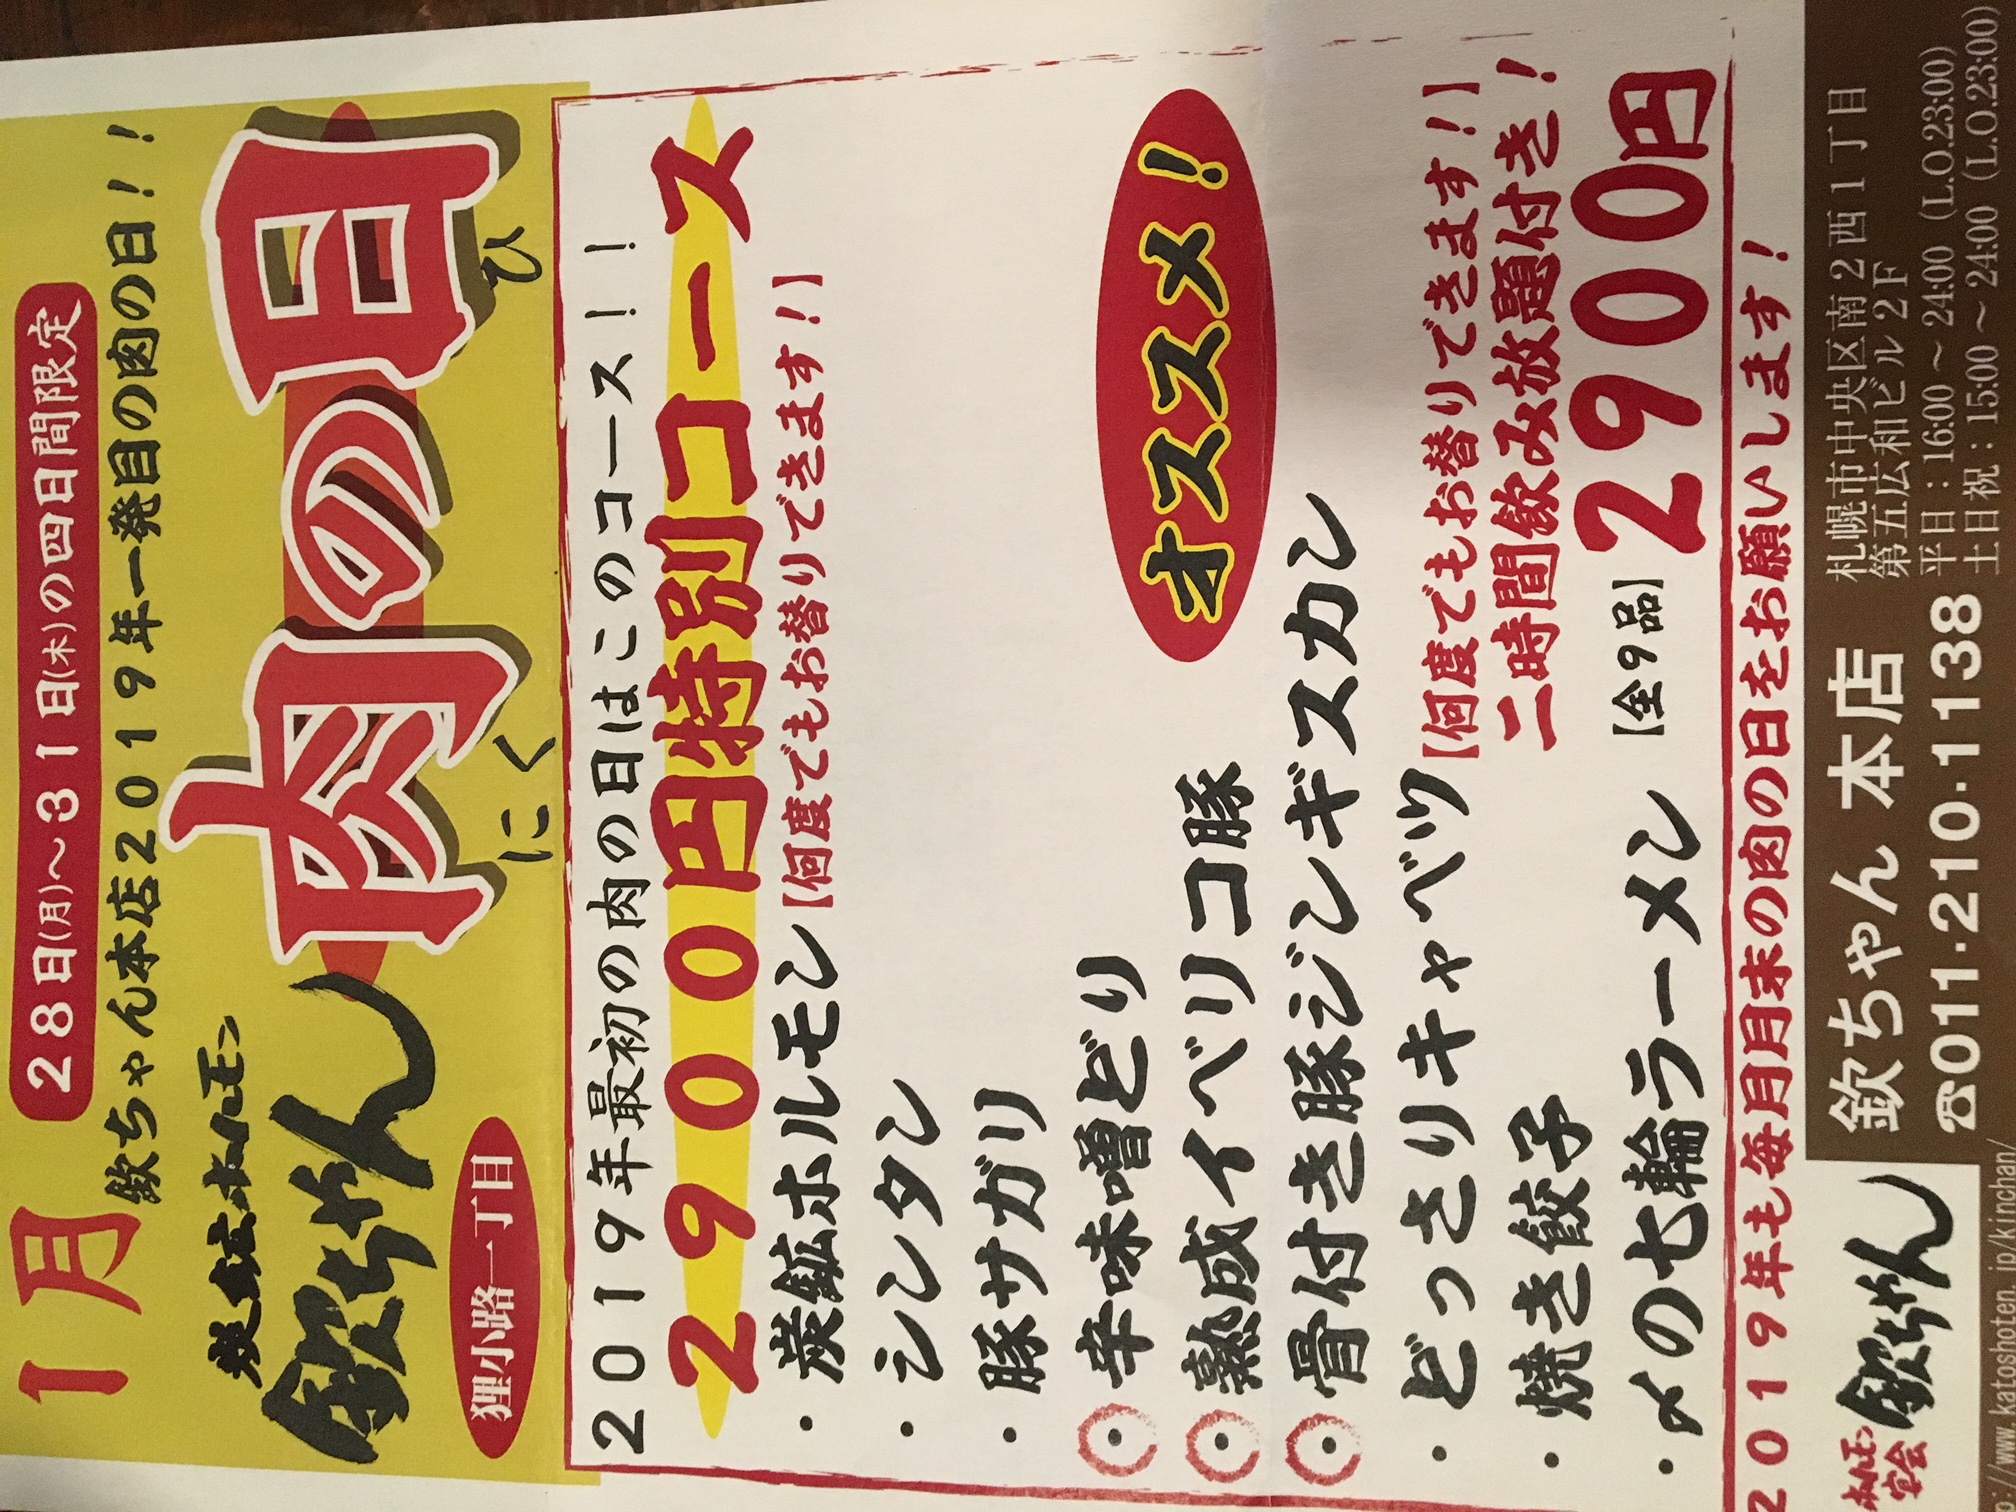 1月
28日(月)～31日(木)の四日間限定
欽ちゃん本店2019年一発目の肉の日！！
炭鉱ホルモン
欽ちゃん
狸小路一丁目
肉の日
にく
ひ
2019年最初の肉の日はこのコース！！
2900円特別コース
・炭鉱ホルモン【何度でもお替りできます！】
・シンタン
・豚サガリ
・辛味噌どり
・熟成イベリコ豚
・骨付き豚ジンギスカン
オススメ！
・どっさりキャベツ【何度でもお替りできます！】
・焼き餃子
二時間飲み放題付き！
・〆の七輪ラーメン【全9品】2900円
2019年も毎月月末の肉の日をお願いします！
ホルモン
宴会
欽ちゃん
欽ちゃん 本店
☎011・210・1138
札幌市中央区南2西1丁目
第五広和ビル2F
平日：16:00～24:00（L.O.23:00）
土日祝：15:00～24:00（L.O.23:00）
//www.katoshoten.jp/kinchan/